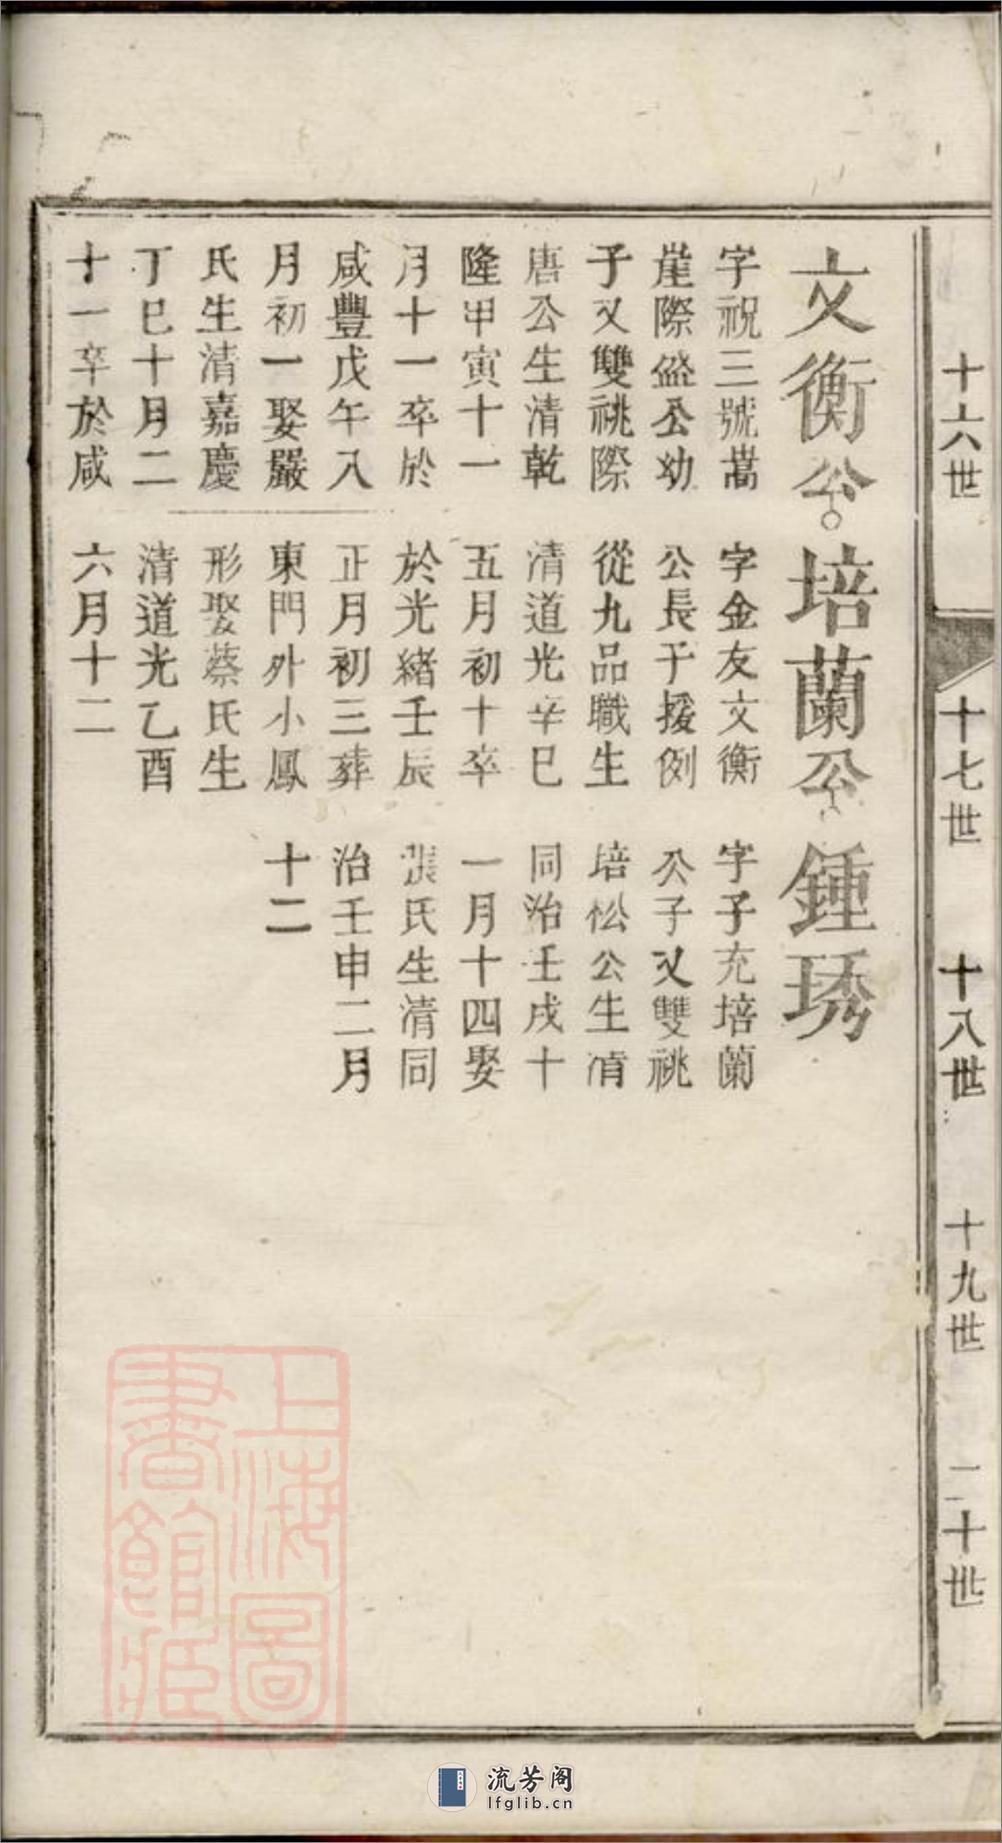 十六世
十七世
十八世
十九世
二十世
文衡公
字祝三號嵩
崖際盛公幼
子又雙祧際
唐公生清乾
隆甲寅十一
月十一卒於
咸豐戊午八
月初一娶嚴
氏生清嘉慶
丁巳十月二
十一卒於咸
培蘭公
字金友文衡
公長子援例
從九品職生
清道光辛巳
五月初十卒
於光緒壬辰
正月初三葬
東門外小鳳
形娶蔡氏生
清道光乙酉
六月十二
鍾琇
字子充培蘭
公子又雙祧
培松公生清
同治壬戌十
一月十四娶
張氏生清同
治壬申二月
十二
上海圖
書館藏
流芳阁
lfglib.cn